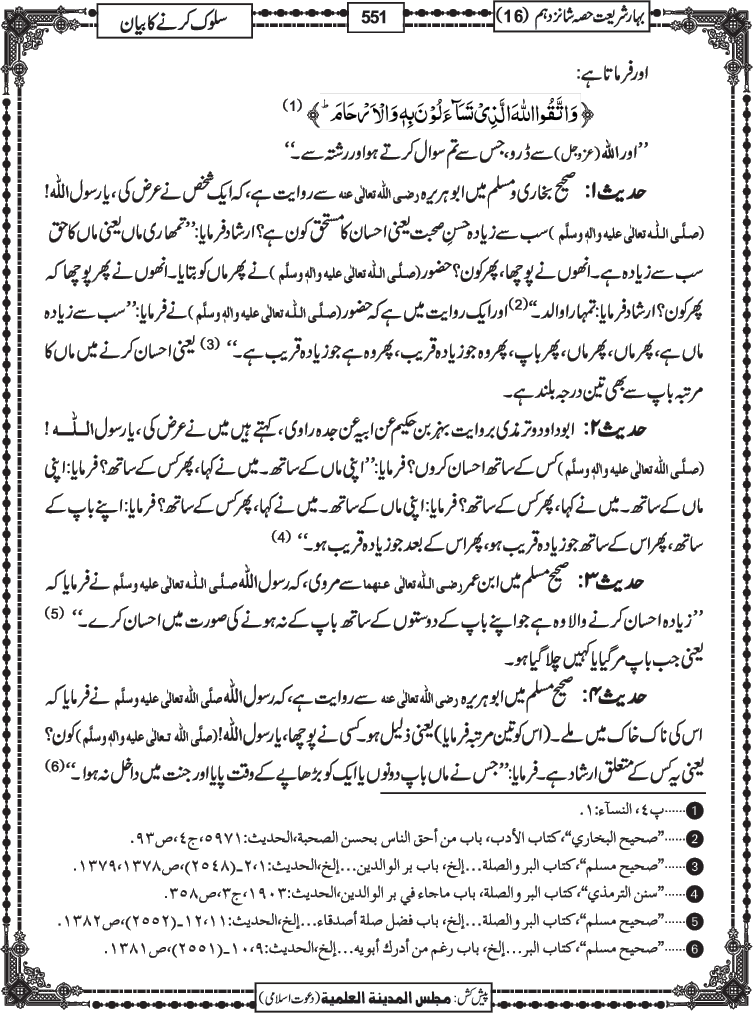 بہارِ شریعت حصہ شانزدہم (16)
551
سلوک کرنے کا بیان
اور فرماتا ہے:
﴿ وَاتَّقُوا اللّٰهَ الَّذِیْ تَسَآءَلُوْنَ بِهٖ وَ الْاَرْحَامَ ؕ ﴾ (1)
’’اور اللہ (عزوجل) سے ڈرو، جس سے تم سوال کرتے ہو اور رشتہ سے۔‘‘
حدیث ۱: صحیح بخاری و مسلم میں ابوہریرہ رضی اللہ تعالیٰ عنہ سے روایت ہے، کہ ایک شخص نے عرض کی، یارسول اللہ!
(صلَّی اللہ تعالٰی علیہ واٰلہٖ وسلَّم) سب سے زیادہ حسنِ صحبت یعنی احسان کا مستحق کون ہے؟ ارشاد فرمایا: ’’تمھاری ماں یعنی ماں کا حق
سب سے زیادہ ہے۔ انھوں نے پوچھا، پھر کون؟ حضور (صلَّی اللہ تعالٰی علیہ واٰلہٖ وسلَّم) نے پھر ماں کو بتایا۔ انھوں نے پھر پوچھا کہ
پھر کون؟ ارشاد فرمایا: تمہارا والد۔‘‘ (2) اور ایک روایت میں ہے کہ حضور (صلَّی اللہ تعالٰی علیہ واٰلہٖ وسلَّم) نے فرمایا: ’’سب سے زیادہ
ماں ہے، پھر ماں، پھر ماں، پھر باپ، پھر وہ جو زیادہ قریب، پھر وہ ہے جو زیادہ قریب ہے۔‘‘ (3) یعنی احسان کرنے میں ماں کا
مرتبہ باپ سے بھی تین درجہ بلند ہے۔
حدیث ۲: ابوداود و ترمذی بروایت بہز بن حکیم عن ابیہ عن جدہ راوی، کہتے ہیں میں نے عرض کی، یارسول اللہ!
(صلَّی اللہ تعالٰی علیہ واٰلہٖ وسلَّم) کس کے ساتھ احسان کروں؟ فرمایا: ’’اپنی ماں کے ساتھ۔ میں نے کہا، پھر کس کے ساتھ؟ فرمایا: اپنی
ماں کے ساتھ۔ میں نے کہا، پھر کس کے ساتھ؟ فرمایا: اپنی ماں کے ساتھ۔ میں نے کہا، پھر کس کے ساتھ؟ فرمایا: اپنے باپ کے
ساتھ، پھر اس کے ساتھ جو زیادہ قریب ہو، پھر اس کے بعد جو زیادہ قریب ہو۔‘‘ (4)
حدیث ۳: صحیح مسلم میں ابن عمر رضی اللہ تعالیٰ عنہما سے مروی، کہ رسول اللہ صلَّی اللہ تعالٰی علیہ واٰلہٖ وسلَّم نے فرمایا کہ
’’زیادہ احسان کرنے والا وہ ہے جو اپنے باپ کے دوستوں کے ساتھ باپ کے نہ ہونے کی صورت میں احسان کرے۔‘‘ (5)
یعنی جب باپ مر گیا یا کہیں چلا گیا ہو۔
حدیث ۴: صحیح مسلم میں ابوہریرہ رضی اللہ تعالیٰ عنہ سے روایت ہے، کہ رسول اللہ صلَّی اللہ تعالٰی علیہ واٰلہٖ وسلَّم نے فرمایا کہ
اس کی ناک خاک میں ملے۔ (اس کو تین مرتبہ فرمایا) یعنی ذلیل ہو۔ کسی نے پوچھا، یارسول اللہ! (صلَّی اللہ تعالٰی علیہ واٰلہٖ وسلَّم) کون؟
یعنی یہ کس کے متعلق ارشاد ہے۔ فرمایا: ’’جس نے ماں باپ دونوں یا ایک کو بڑھاپے کے وقت پایا اور جنت میں داخل نہ ہوا۔‘‘ (6)
1 ......پ٤، النسآء:١.
2 ......”صحيح البخاري“، كتاب الأدب، باب من أحق الناس بحسن الصحبة، الحديث:٥٩٧١، ج٤، ص٩٣.
3 ......”صحيح مسلم“، كتاب البر والصلة...إلخ، باب بر الوالدين...إلخ، الحديث:١،٢ـ(٢٥٤٨)، ص١٣٧٨،١٣٧٩.
4 ......”سنن الترمذي“، كتاب البر والصلة، باب ماجاء في بر الوالدين، الحديث:١٩٠٣، ج٣، ص٣٥٨.
5 ......”صحيح مسلم“، كتاب البر والصلة...إلخ، باب فضل صلة أصدقاء...إلخ، الحديث:١١،١٢ـ(٢٥٥٢)، ص١٣٨٢.
6 ......”صحيح مسلم“، كتاب البر...إلخ، باب رغم من أدرك أبويه...إلخ، الحديث:٩،١٠ـ(٢٥٥١)، ص١٣٨١.
پیش کش: مجلس المدینة العلمیة (دعوت اسلامی)